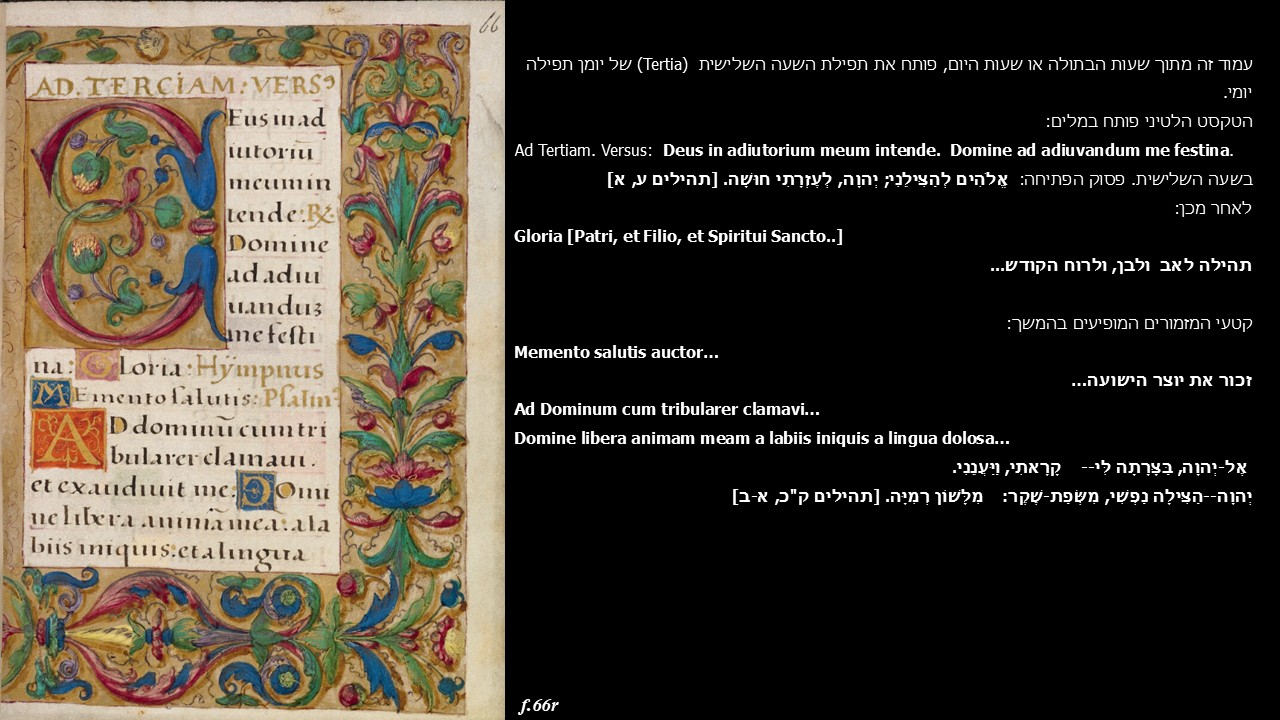 66
AD. TERCIAM: VERSꝰ
Eus in ad
iutoriū
meum in
tende: ℟.
Domine
ad adiu
uanduʒ
me festi
na: Gloria: Hÿmpnus
MEmento salutis: Psalmꝰ
AD dominū cum tri
bularer clamaui.
et exaudiuit me. Domi
ne libera animā mea. a la
biis iniquis: et a lingua
עמוד זה מתוך שעות הבתולה או שעות היום, פותח את תפילת השעה השלישית (Tertia) של יומן תפילה
יומי.
הטקסט הלטיני פותח במלים:
Ad Tertiam. Versus: Deus in adiutorium meum intende. Domine ad adiuvandum me festina.
בשעה השלישית. פסוק הפתיחה: אֱלֹהִים לְהַצִּילֵנִי; יְהוָה, לְעֶזְרָתִי חוּשָׁה. [תהילים ע, א]
לאחר מכך:
Gloria [Patri, et Filio, et Spiritui Sancto..]
תהילה לאב ולבן, ולרוח הקודש...
קטעי המזמורים המופיעים בהמשך:
Memento salutis auctor...
זכור את יוצר הישועה...
Ad Dominum cum tribularer clamavi...
Domine libera animam meam a labiis iniquis a lingua dolosa...
אֶל-יְהוָה, בַּצָּרָתָה לִּי-- קָרָאתִי, וַיַּעֲנֵנִי.
יְהוָה--הַצִּילָה נַפְשִׁי, מִשְּׂפַת-שֶׁקֶר: מִלָּשׁוֹן רְמִיָּה. [תהילים ק"כ, א-ב]
f.66r